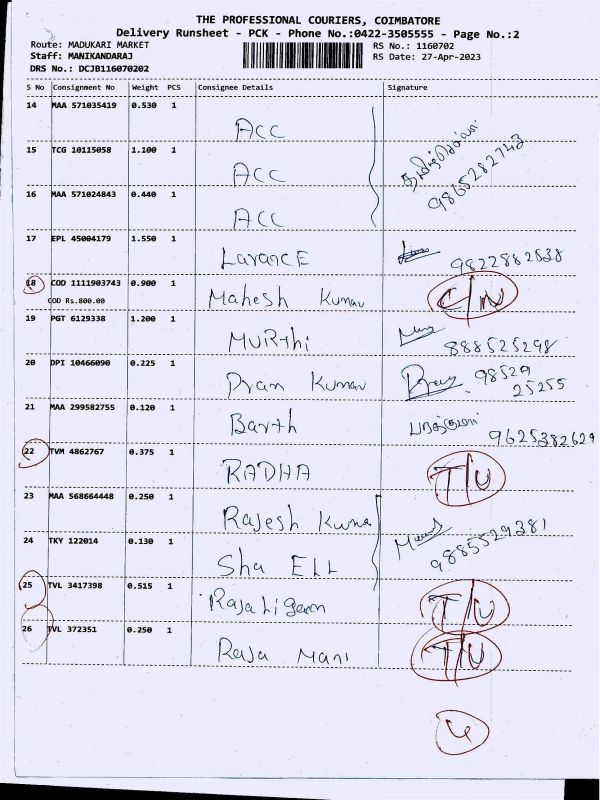 THE PROFESSIONAL COURIERS, COIMBATORE
Delivery Runsheet - PCK - Phone No.:0422-3505555 - Page No.:2
Route: MADUKARI MARKET RS No.: 1160702
Staff: MANIKANDARAJ RS Date: 27-Apr-2023
DRS No.: DCJB116070202
S No Consignment No Weight PCS Consignee Details Signature
14 MAA 571035419 0.530 1 ACC
15 TCG 10115058 1.100 1 ACC 9865282743
16 MAA 571024843 0.440 1 ACC
17 EPL 45004179 1.550 1 LarancE 9822882838
18 COD 1111903743 0.900 1 Mahesh Kumar C/N
COD Rs.800.00
19 PGT 6129338 1.200 1 MURthi 888525298
20 DPI 10466090 0.225 1 Pran Kumar 98529
25255
21 MAA 299582755 0.120 1 Barth 9625382629
22 TVM 4862767 0.375 1 RADHA T/U
23 MAA 568664448 0.250 1 Rajesh Kuma
24 TKY 122014 0.130 1 Sha ELL 9885529381
25 TVL 3417398 0.515 1 T/U
26 TVL 372351 0.250 1 Raja Mani T/U
4